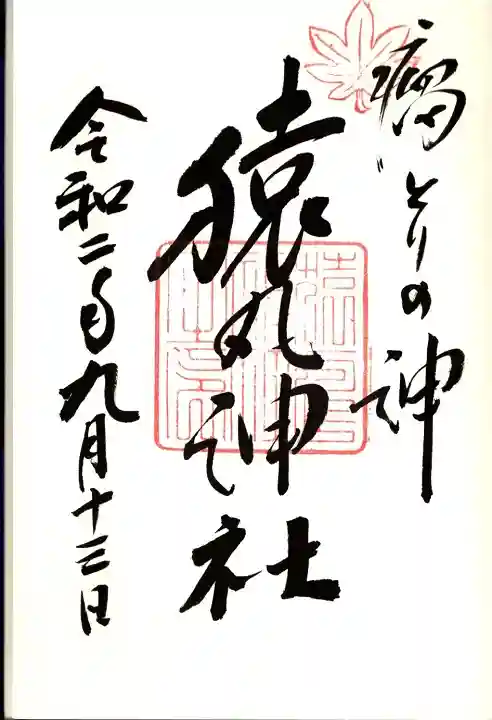 瘤とりの神
猿丸神社
令和二年九月十三日